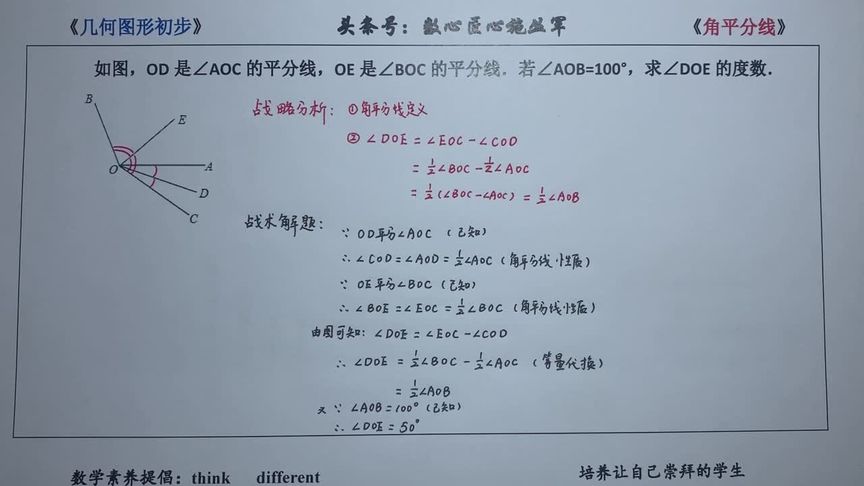 《几何图形初步》 头条号：数心匠心施丛军 《角平分线》
如图，OD 是∠AOC 的平分线，OE 是∠BOC 的平分线．若∠AOB=100°，求∠DOE 的度数．
B
E
O
A
D
C
战略分析：①角平分线定义
②∠DOE = ∠EOC − ∠COD
= 1/2∠BOC − 1/2∠AOC
= 1/2(∠BOC−∠AOC) = 1/2∠AOB
战术解题：
∵ OD平分∠AOC （已知）
∴ ∠COD = ∠AOD = 1/2∠AOC（角平分线性质）
∵ OE平分∠BOC（已知）
∴ ∠BOE = ∠EOC = 1/2∠BOC（角平分线性质）
由图可知：∠DOE = ∠EOC − ∠COD
∴ ∠DOE = 1/2∠BOC − 1/2∠AOC （等量代换）
= 1/2∠AOB
又∵ ∠AOB = 100°（已知）
∴ ∠DOE = 50°
数学素养提倡：think different
培养让自己崇拜的学生